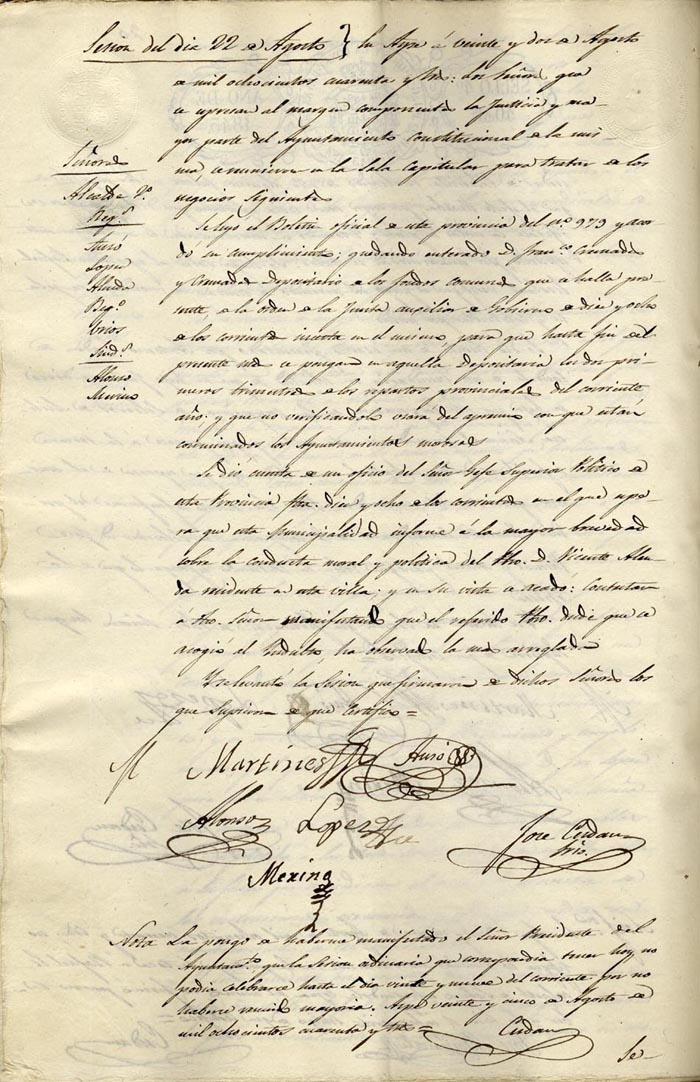 Sesion del dia 22 de Agosto } En Aspe á veinte y dos de Agosto
de mil ochocientos cuarenta y tres: Los Señores que
se espresan al margen componentes la Justicia y ma-
yor parte del Ayuntamiento constitucional de la mis-
ma, se reunieron en la Sala Capitular para tratar de los
negocios siguientes
Señores
Alcalde 2º.
Reg.s
Lopez
Almida
Beg.º
Urios
Sind.s
Alonso
Merino
Se leyo el Boletin oficial de esta provincia del nº 979 y acor-
dó su cumplimiento; quedando enterado D. Fran.co Cremades
y Cremades Depositario de los fondos comunes que se halla pre-
sente, de la orden de la Junta auxiliar de Gobierno de diez y ocho
de los corrientes inserta en el mismo, para que hasta fin del
presente mes se pongan en aquella Depositaria los dos pri-
meros trimestres de los repartos provinciales del corriente
año; y que no verificandolo usará del apremio con que estan
conminados los Ayuntamientos morosos
Se dió cuenta de un oficio del Señor Gefe Superior Politico de
esta Provincia fha. diez y ocho de los corrientes en el que
que esta Municipalidad informe á la mayor brevedad
sobre la conducta moral y politica del fho. D. Vicente
residente en esta villa; y en su vista se acordó: Contestar
á dho. Señor manifestando que el referido dho. desde que se
acogió al Indulto, ha observado la mas arreglada
Y se levantó la Sesion que firmaron de dichos Señores los
que supieron de que Certifico =
M Martines
Alonso Lopez Jose Cerdan
Srio.
Merino
Nota La pongo de haberme manifestado el Señor Presidente del
Ayuntam.to que la Sesion ordinaria que correspondia tener hoy, no
podia celebrarse hasta el dia veinte y nueve del corriente por no
haberse reunido mayoria. Aspe veinte y cinco de Agosto de
mil ochocientos cuarenta y tres = Cerdan
Se-